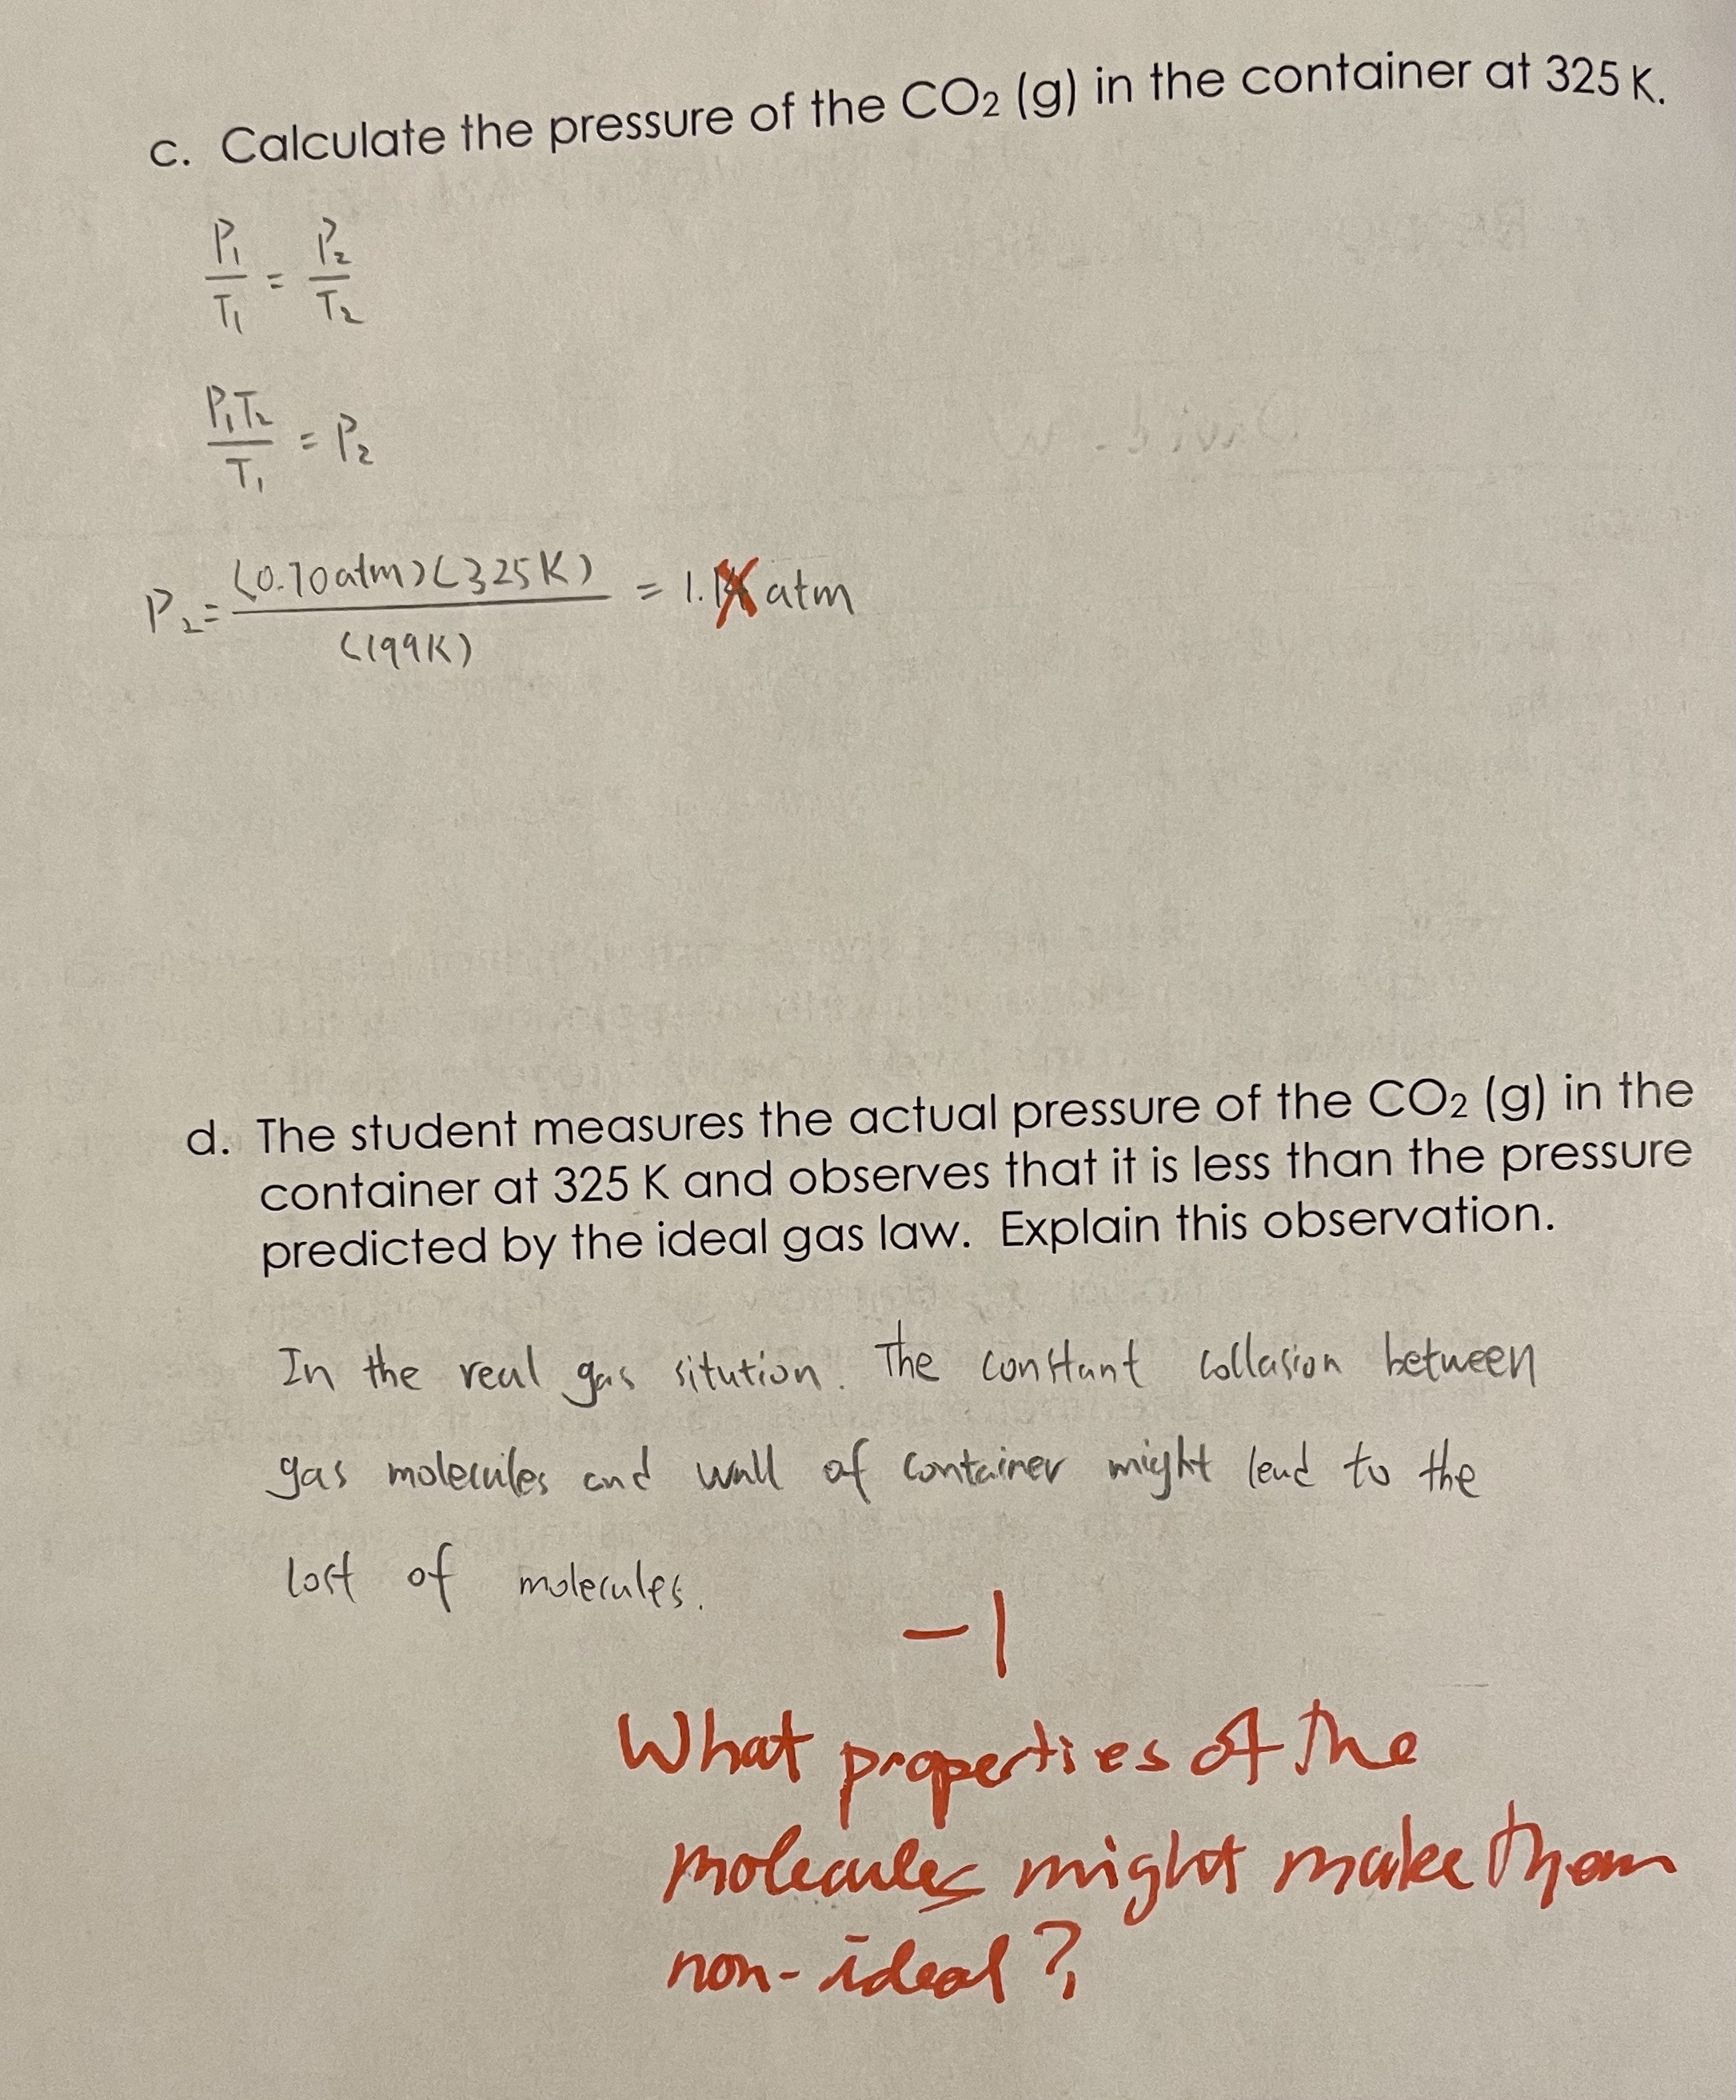 c. Calculate the pressure of the CO₂ (g) in the container at 325 K.
P₁/T₁ = P₂/T₂
P₁T₂/T₁ = P₂
P₂ = (0.70atm)(325K)/(199K) = 1.1 atm
d. The student measures the actual pressure of the CO₂ (g) in the
container at 325 K and observes that it is less than the pressure
predicted by the ideal gas law. Explain this observation.
In the real gas sitution. The constant collasion between
gas molecules and wall of container might lead to the
lost of molecules.
-1
What properties of the
molecules might make them
non-ideal?